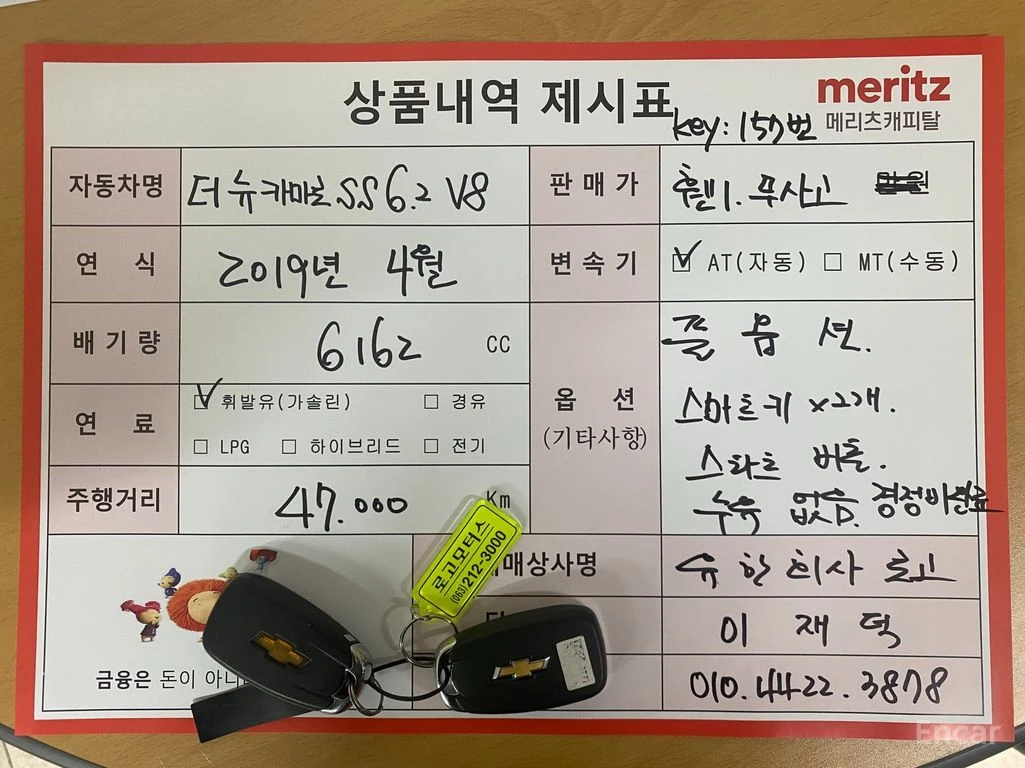 상품내역 제시표
meritz
메리츠캐피탈
key: 157번
자동차명 더 뉴카마로 SS 6.2 V8
판매가 휀1. 무사고
연 식 2019년 4월
변속기 ☑ AT(자동) □ MT(수동)
배기량 6162 CC
연 료 ☑ 휘발유(가솔린) □ 경유
□ LPG □ 하이브리드 □ 전기
주행거리 47.000 Km
옵 션
(기타사항)
풀 옵 션.
스마트키 x2개.
스타트 버튼.
누유 없슴. 경정비완료
로고모터스
(063)212-3000
매상사명 유한회사 로고
이 재 덕
010.4422.3878
금융은 돈이 아니
Encar